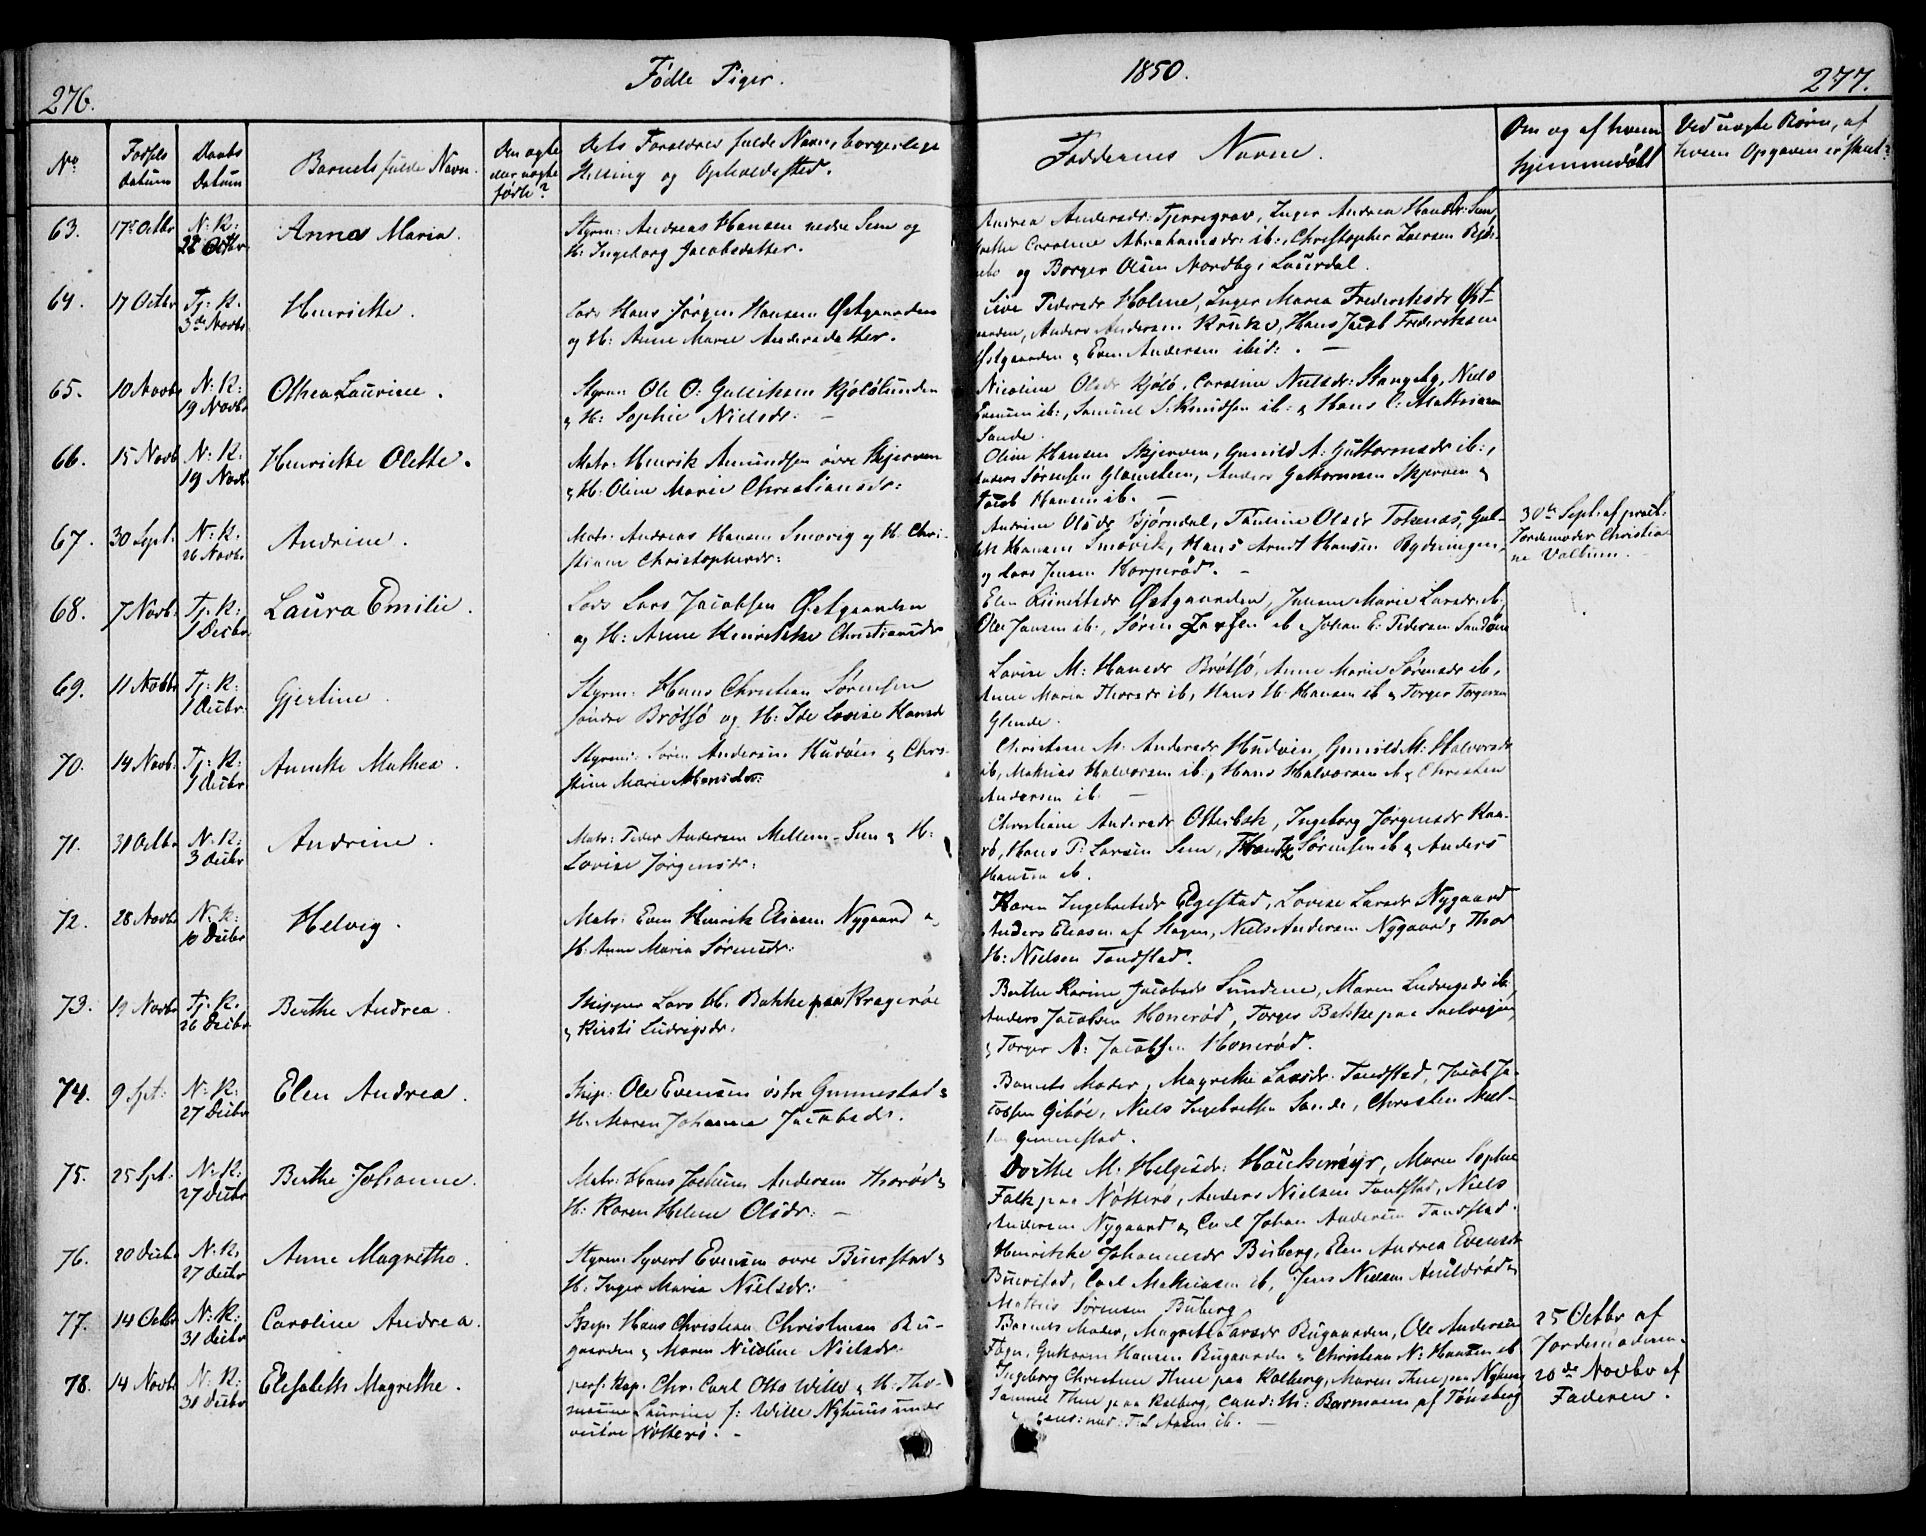 276.
Fødte Piger.
1850.
277.
No
Fødsels Datum
Daabs Datum
Barnets fulde Navn.
Om ægte eller uægte født?
Dets Forældres fulde Navn, borgerlige Stilling og Opholdssted.
Faddernes Navne.
Om og af hvem hjemmedøbt
Ved uægte Børn, af hvem Opgaven er skeet?
63. 17de Octbr N: K: 22 Octbr Anna Maria.
Styrm: Andreas Hansen nedre Sem og
H: Ingeborg Jacobsdatter.
Andrea Andersdr: Fjerregrav, Inger Andrea Hansdr: Sem,
Caroline Abrahamsdr: ib:, Christopher Iversen
og Borger Olsen Nordby i Laurdal.
64. 17 Octbr Tj: K: 3de Novbr Henriette.
Lods Hans Jørgen Hansen Østgaarden
og H: Anne Marie Andersdatter.
Sive Pedersdr Holme, Inger Maria Frederiksdr Øst-
gaarden, Anders Andersen Kruke, Hans Jacob Frederiksen
Østgaarden & Even Andersen ibid: . —
65. 10 Novbr N: K: 19 Novbr Othea Laurine.
Styrm: Ole O: Gulliksen Kjølølunden
& H: Sophie Nielsdr: —
Nicoline Olsdr Kjölö, Caroline Nielsdr: Stangeby, Niels
Evensen ib:, Samuel S: Knudsen ib: & Hans C: Mathiasen
Sande.
66. 15 Novb N: K: 19 Novb. Henriette Olette.
Matr: Henrik Amundsen øvre Skjerven
& H: Oline Marie Christiansdr:
Oline Hansen Skjerven, Gunild A: Guttormsdr ib:,
Anders Sørensen Glomstein, Anders Guttormsen Skjerven &
Jacob Hansen ib. —
67. 30 Sept: N: K: 26 Novbr. Andrine.
Matr: Andreas Hansen Smovig og H: Chri-
stiane Christophersdr:
Andrine Olsdr Bjørndal, Pauline Olsdr Tokenæs, Gul-
lik Hansen Smovik, Hans Arndt Hansen Rydningen,
og Lars Jensen Korperød. —
30te Sept: af præst:
Jordemoder Christia-
ne Valbum. —
68. 7 Novbr. Tj: K: 1 Decbr. Laura Emilie.
Lods Lars Jacobsen Østgaarden
og H: Anne Henrikke Christiansdr
Elen Østgaarden, Juliane Marie Larsdr ib,
Ole Jansen ib:, Søren Larsen ib & Johan E: Pedersen Sandøen
69. 11 Novbr Tj: K: 1 Decbr. Gjertine.
Styrm: Hans Christian Sørensen
søndre Brøtsö og H: Ide Lovise Hansdr
Lovise M: Hansdr Brøtsö, Anne Marie Sørensdr ib,
Anne Maria Thorsdr ib, Hans H: Hansen ib & Torger Torgersen
Glende.
70. 14 Novb. Tj: K: 1 Decbr Annette Mathea.
Styrm: Søren Andersen Hudøen & Chri-
stine Marie Hansdr:
Christine M: Andersdr Hudøen, Gunild M: Halvorsdr
ib, Mathias Halvorsen ib:, Hans Halvorsen ib & Christen
Andersen ib. —
71. 31 Octbr N: K: 3 Decbr Andrine.
Matr: Peder Andersen Mellem-Sem & H:
Lovise Jørgensdr:
Christiane Andersdr Otterbek, Ingeborg Jørgensdr
Hans P: Larsen Sem, Sørensen ib & Anders
Hansen ib.
72. 28 Novbr N: K: 10 Decbr Helvig.
Matr: Even Henrik Eliasen Nygaard &
H: Anne Maria Sørensdr:
Karen Ingebretsdr Elgestad, Lovise Larsdr Nygaard
Anders Eliasen af Slagen, Niels Andersen Nygaard & Thor
H: Nielsen Tandstad.
73. 19 Novbr Tj: K: 26 Decbr Berthe Andrea.
Skipper Lars H: Bakke paa Kragerøe
& Kirsti Ludvigsdr:
Berthe Karine Jacobsdr Sundene, Maren Ludvigsdr ib,
Anders Jacobsen Honerød, Torger Bakke paa Svelvigen,
& Torger A: Jacobsen Honerød.
74. 9 Spt: N: K: 27 Decbr Elen Andrea.
Skip: Ole Evensen østre Gunnestad &
H: Maren Johanne Jacobsdr.
Barnets Moder, Magrethe Larsdr: Tandstad, Jacob Ja-
cobsen Giböe, Niels Ingebretsen Sande, Christen Niel-
sen Gunnestad.
75. 25 Spt: N: K: 27 Decbr Berthe Johanne.
Matr: Hans Jochum Andersen Horød &
H: Karen Helene Olsdr: —
Dorthe M: Helgesdr: Haukemyr, Maren Sophie
Falk paa Nötterö, Anders Nielsen Tandstad, Niels
Andersen Nygaard & Carl Johan Andersen Tandstad.
76. 20 Decbr N: K: 27 Decbr Anne Magrethe.
Styrm: Syvert Evensen øvre Buerstad &
H: Inger Maria Nielsdr:
Henrikke Johannesdr Buberg, Elen Andrea Evensdr
Buerstad, Carl Mathiasen ib, Jens Nielsen &
Mathis Sørensen Buberg.
77. 14 Octbr N: K: 31 Decbr Caroline Andrea.
Skip: Hans Christian Christensen Bu-
gaarden & Maren Nicoline Nielsdr:
Barnets Moder, Magrethe Larsdr Bugaarden, Ole Andersen
Guttorm Hansen Bugaarden & Christian N: Hansen ib
25 Octbr af
Jordemoderen.
78. 14 Novbr N: K: 31 Decbr Elisabeth Magrethe.
pers: Kap: Chr: Carl Otto Wille & H: Tho-
masine Laurine f: Wille Nyhuus under
vestre Nötterö. —
Ingeborg Christine Thue paa Kolberg, Maren Thue paa Nyhuus
Samuel Thue paa Kolberg, cand: th: Barmann af Tönsberg
& cand: med: T: S Aasen ib. —
20de Novbr af
Faderen.